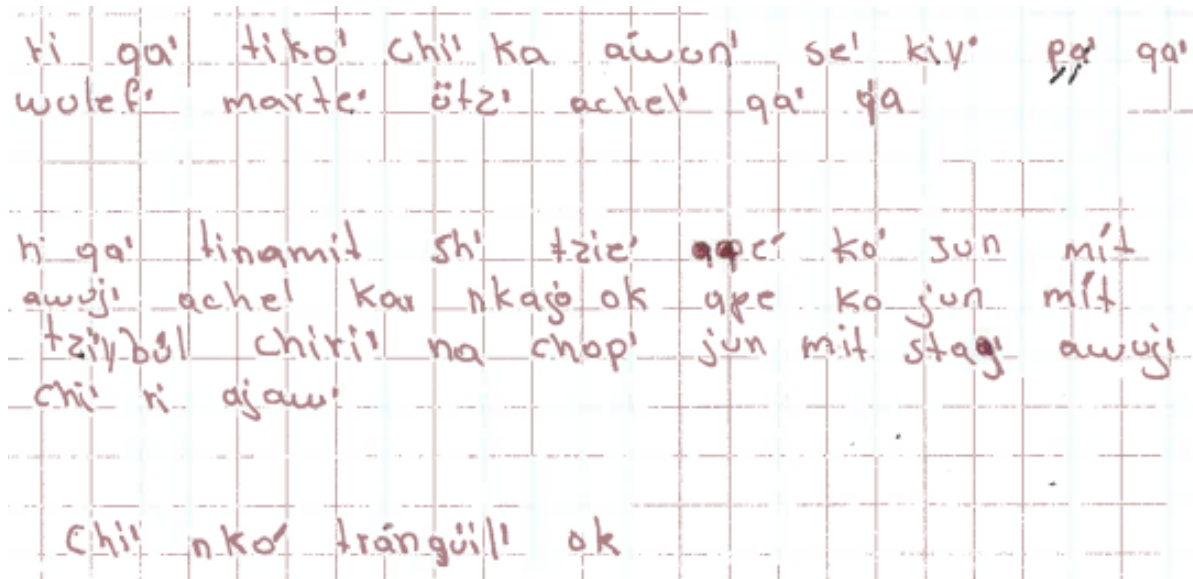 ri qa' tiko' chi' ka awun' se' kiy' pa' qa'
wulef' marte' ütz' achel' qa' qa
ri qa' tinamit sh' tzie' qpe' ko' jun mít
awuj' achel kar nkajo ok qpe ko jun mít
tziybúl chiri' na chop' jun mit staq' awuj'
chi' ri ajaw'
chi' nko' tránqüil' ok